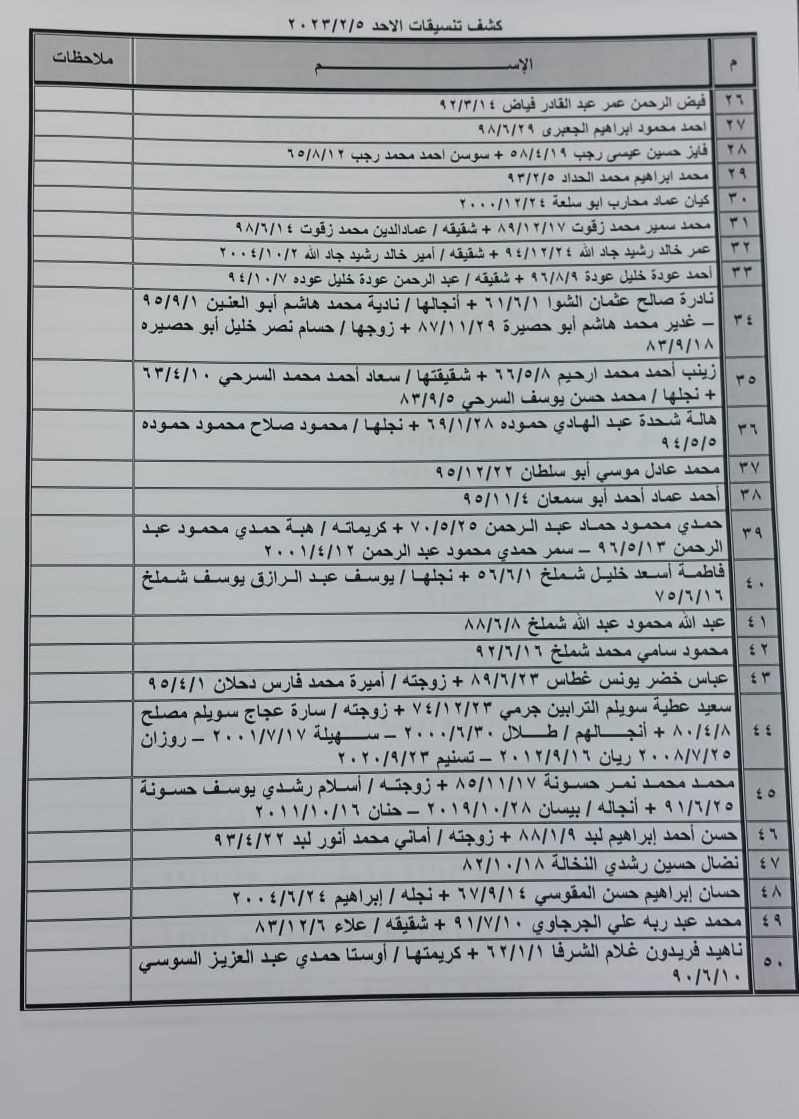 كشف تنسيقات الاحد ٢٠٢٣/٢/٥
م الإســـــــم ملاحظات
٢٦ فيض الرحمن عمر عبد القادر فياض ٩٢/٣/١٤
٢٧ احمد محمود ابراهيم الجعبرى ٩٨/٦/٢٩
٢٨ فايز حسين عيسى رجب ٥٨/٤/١٩ + سوسن احمد محمد رجب ٦٥/٨/١٢
٢٩ محمد ابراهيم محمد الحداد ٩٣/٢/٥
٣٠ كيان عماد محارب ابو سلعة ٢٠٠٠/١٢/٢٤
٣١ محمد سمير محمد زقوت ٨٩/١٢/١٧ + شقيقه / عمادالدين محمد زقوت ٩٨/٦/١٤
٣٢ عمر خالد رشيد جاد الله ٩٤/١٢/٢٤ + شقيقه / أمير خالد رشيد جاد الله ٢٠٠٤/١٠/٢
٣٣ أحمد عودة خليل عودة ٩٦/٨/٩ + شقيقه / عبد الرحمن عودة خليل عوده ٩٤/١٠/٧
٣٤ نادرة صالح عثمان الشوا ٦١/٦/١ + أنجالها / نادية محمد هاشم أبو العنين ٩٥/٩/١
– غدير محمد هاشم أبو حصيرة ٨٧/١١/٢٩ + زوجها / حسام نصر خليل أبو حصيره
٨٣/٩/١٨
٣٥ زينب أحمد محمد ارحيم ٦٦/٥/٨ + شقيقتها / سعاد أحمد محمد السرحي ٦٣/٤/١٠
+ نجلها / محمد حسن يوسف السرحي ٨٣/٩/٥
٣٦ هالة شحدة عبد الهادي حموده ٦٩/١/٢٨ + نجلها / محمود صلاح محمود حموده
٩٤/٥/٥
٣٧ محمد عادل موسي أبو سلطان ٩٥/١٢/٢٢
٣٨ أحمد عماد أحمد أبو سمعان ٩٥/١١/٤
٣٩ حمدي محمود حماد عبد الرحمن ٧٠/٥/٢٥ + كريماته / هبة حمدي محمود عبد
الرحمن ٩٦/٥/١٣ – سمر حمدي محمود عبد الرحمن ٢٠٠١/٤/١٢
٤٠ فاطمة أسعد خليل شملخ ٥٦/٦/١ + نجلها / يوسف عبد الرازق يوسف شملخ
٧٥/٦/١٦
٤١ عبد الله محمود عبد الله شملخ ٨٨/٦/٨
٤٢ محمود سامي محمد شملخ ٩٢/٦/١٦
٤٣ عباس خضر يونس غطاس ٨٩/٦/٢٣ + زوجته / أميرة محمد فارس دحلان ٩٥/٤/١
٤٤ سعيد عطية سويلم الترابين جرمي ٧٤/١٢/٢٣ + زوجته / سارة عجاج سويلم مصلح
٨٠/٤/٨ + أنجالهم / طلال ٢٠٠٠/٦/٣٠ – سهيلة ٢٠٠١/٧/١٧ – روزان
٢٠٠٨/٧/٢٥ ريان ٢٠١٢/٩/١٦ – تسنيم ٢٠٢٠/٩/٢٣
٤٥ محمد محمد نمر حسونة ٨٥/١١/١٧ + زوجته / أسلام رشدي يوسف حسونة
٩١/٦/٢٥ + أنجاله / بيسان ٢٠١٩/١٠/٢٨ – حنان ٢٠١١/١٠/١٦
٤٦ حسن أحمد إبراهيم لبد ٨٨/١/٩ + زوجته / أماني محمد أنور لبد ٩٣/٤/٢٢
٤٧ نضال حسين رشدي النخالة ٨٢/١٠/١٨
٤٨ حسان إبراهيم حسن المقوسي ٦٧/٩/١٤ + نجله / إبراهيم ٢٠٠٤/٦/٢٤
٤٩ محمد عبد ربه علي الجرجاوي ٩١/٧/١٠ + شقيقه / علاء ٨٣/١٢/٦
٥٠ ناهيد فريدون غلام الشرفا ٦٢/١/١ + كريمتها / أوستا حمدي عبد العزيز السوسي
٩٠/٦/١٠